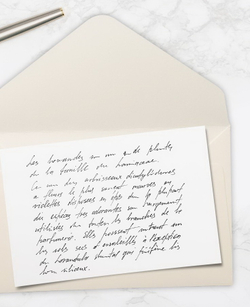 Les lavandes un de plantes
de la famille des lamiaceae.
Ce sont des arbrisseaux dicotylédones
à fleurs le plus souvent mauves ou
violettes disposées en épis dont la plupart
des espèces très odorantes sont largement
utilisées dans toutes les branches de la
parfumerie. Elles poussent surtout sur
les sols secs et ensoleillés à l'exception
de lavandula qui préfère les
sols siliceux.